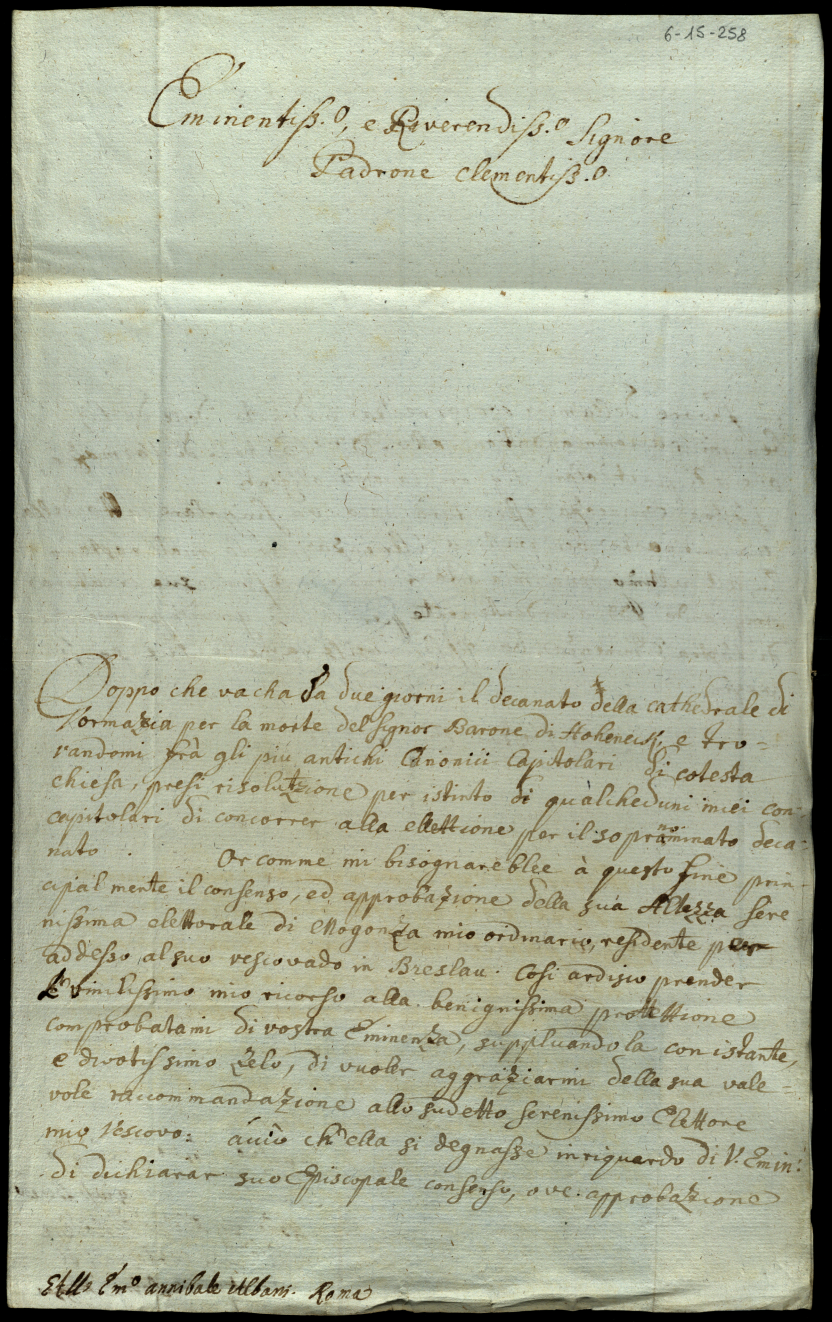 6-15-258
Eminentiss.o, e Reverendiss.o Signore
Padrone Clementiss.o
Doppo che vacha da due giorni il decanato della cathedrale di
Vormazia per la morte del Signor Barone di e tro=
vandomi frà gli più antichi Canonici Capitolari di cotesta
chiesa, presi risolutzione per istinto di quàlcheduni miei con=
capitolari di concorrer alla elettione per il sopranominato deca=
nato. Or comme mi bisognareblee à questo fine prin=
cipalmente il consenso, ed approbazione della sua Altezza Sere=
nissima elettorale di Mogonza mio ordinario, residente per
addesso al suo vescovado in Breslau. Cosi ardisco prender
l'umilissimo mio ricorso alla benignissima prottettione
comprobatami di vostra Eminenza, suppluandola con istante,
e divotissimo zelo, di vuoler aggraziarmi della sua vale=
vole raccommandazione allo sudetto serenissimo Elettore
mio Vescovo: acciò ch'ella si degnasse in riguardo di V. Emin:
di dichiarar suo Episcopale consenso, ove approbazione
Em.o annibale Albani. Roma